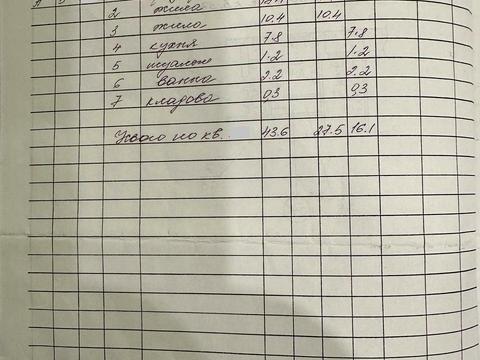 2 жила
3 жила 10.4 10.4
4 кухня 7.8 7.8
5 1.2 1.2
6 ванна 2.2 2.2
7 кладова 0,3 0,3
Усього по кв. 43.6 27.5 16.1